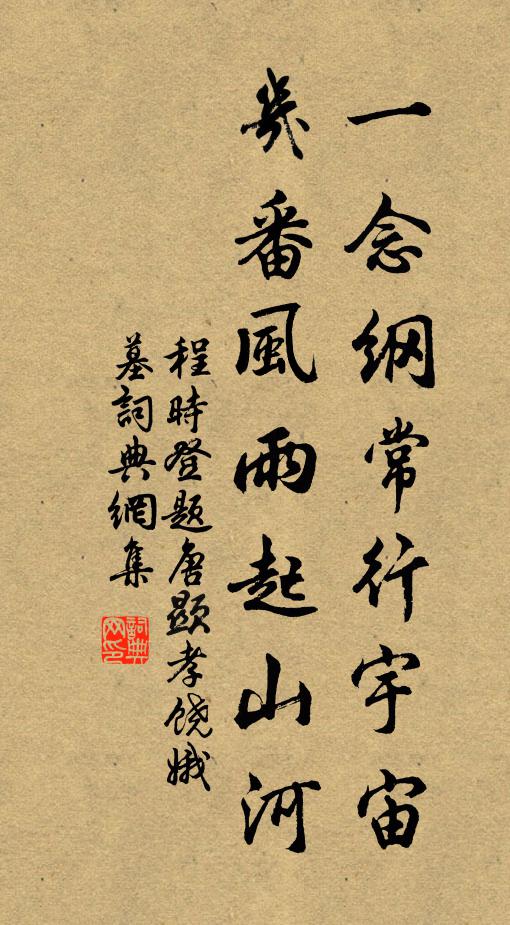 一念纲常行宇宙
几番風雨起山河
程時登题唐顕孝饶娥
墓詞典網集
詞典网印